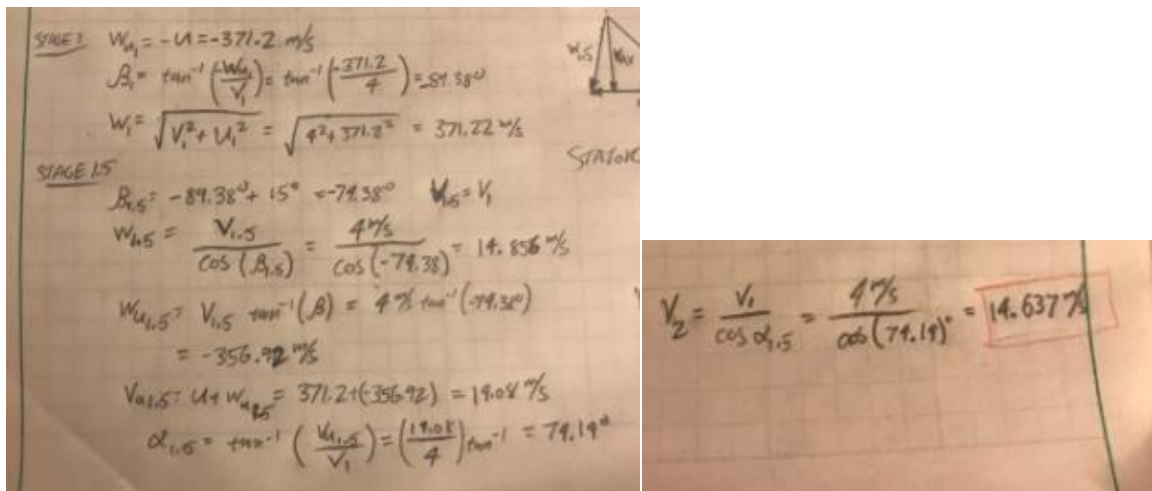 STAGE 1 Wu₁ = -U = -371.2 m/s
β₁ = tan⁻¹(-Wu₁/V₁) = tan⁻¹(-371.2/4) = -89.38°
W₁ = √(V₁² + U₁²) = √(4² + 371.2²) = 371.22 m/s
STAGE 1.5
β₁.₅ = -89.38° + 15° = -74.38° V₁.₅ = V₁
W₁.₅ = V₁.₅/cos(β₁.₅) = 4 m/s/cos(-74.38) = 14.856 m/s
Wu₁.₅ = V₁.₅ tan⁻¹(β) = 4 m/s tan⁻¹(-74.38°)
= -356.92 m/s
Vu1.5 = U + Wu₁.₅ = 371.2+(-356.92) = 14.08 m/s
α₁.₅ = tan⁻¹(Vu₁.₅/V₁) = (14.08/4) tan⁻¹ = 74.14°
W₁.₅
STATOR
V₂ = V₁/cos α₁.₅ = 4 m/s/cos(74.14)° = 14.637 m/s